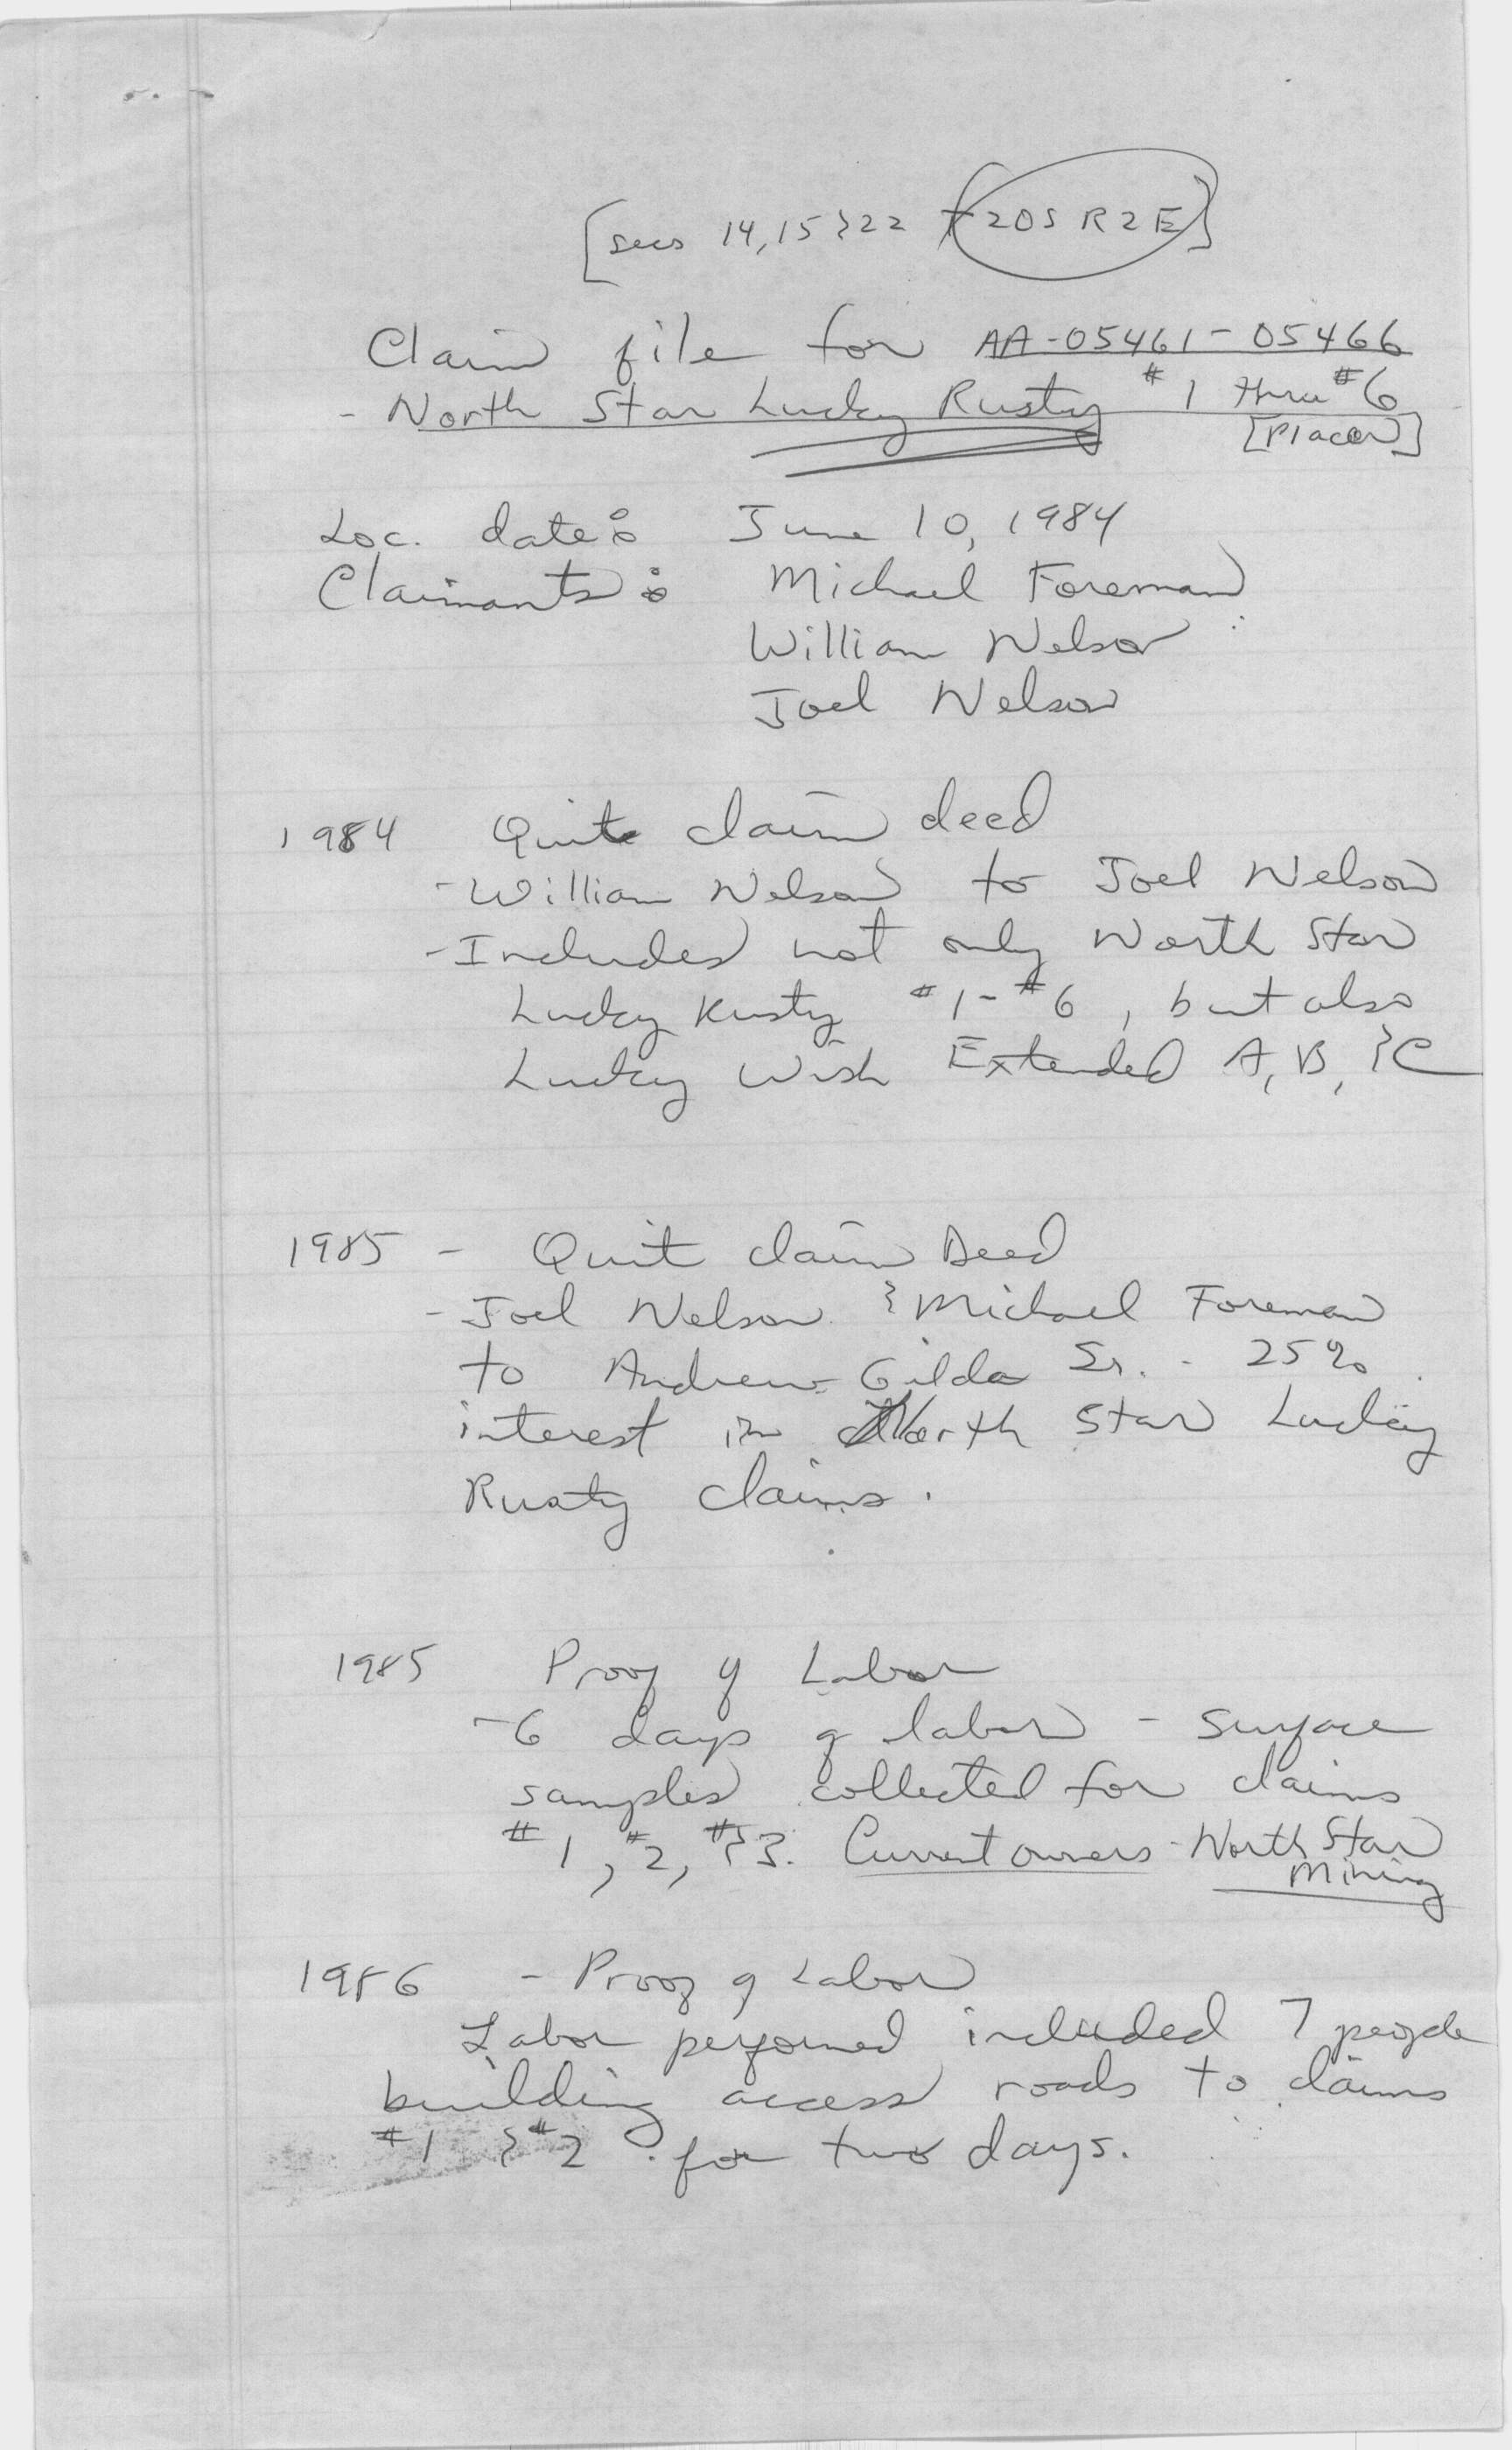 [secs 14,15 & 22 T20S R2E]
Claim file for AA-05461-05466
- North Star Lucky Rusty #1 thru #6
[Placer]
Loc. date: June 10, 1984
Claimants: Michael Foreman
William Nelson
Joel Nelson
1984 Quit claim deed
- William Nelson to Joel Nelson
- Includes not only North Star
Lucky Rusty #1-#6, but also
Lucky Wish Extended A, B, & C
1985 - Quit claim Deed
- Joel Nelson & Michael Foreman
to Andrew Gilda Sr. - 25%
interest in North Star Lucky
Rusty claims.
1985 Proof of Labor
- 6 days of labor - surface
samples collected for claims
#1, #2, #&3. Current owners - North Star
Mining
1986 - Proof of Labor
Labor performed included 7 people
building access roads to claims
#1 & #2 for two days.